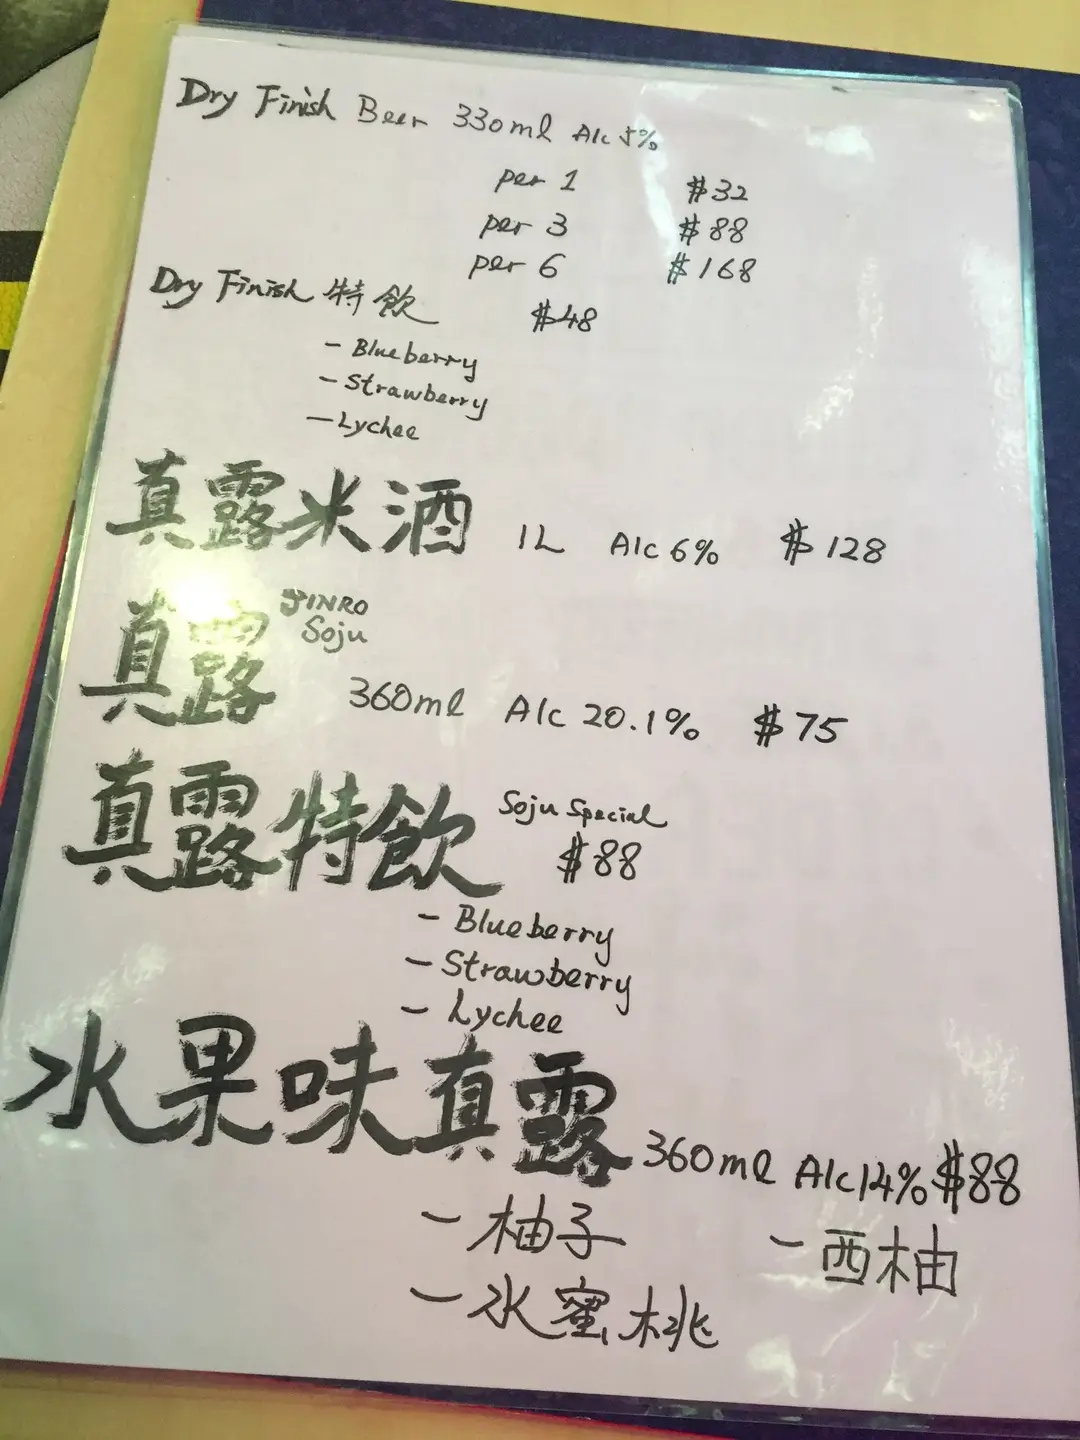 Dry Finish Beer 330ml Alc 5%
per 1 $32
per 3 $88
per 6 $168
Dry Finish 特飲 $48
- Blueberry
- Strawberry
- Lychee
真露米酒 1L Alc 6% $128
真露 JINRO Soju 360ml Alc 20.1% $75
真露特飲 Soju Special $88
- Blueberry
- Strawberry
- Lychee
水果味真露 360ml Alc 14% $88
- 柚子 - 西柚
- 水蜜桃